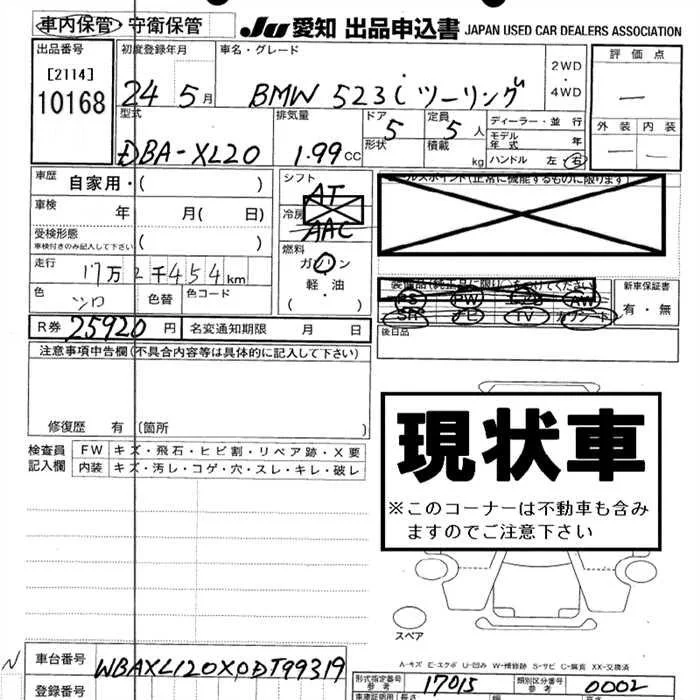 車内保管 守衛保管
JU 愛知 出品申込書 JAPAN USED CAR DEALERS ASSOCIATION
出品番号 初度登録年月 車名・グレード 評価点
[2114]
10168 24 5月 BMW 523i ツーリング 2WD・4WD —
型式 排気量 ドア 定員 ディーラー・並行 外装 内装
DBA-XL20 1.99cc 5 5人 モデル年式 年
形状 積載 kg ハンドル 左 右 — —
車歴 自家用・( )
シフト AT
車検 年 月( 日)
冷房 AAC
受検形態
車検付きのみ記入して下さい ( )
燃料 ガソリン 軽・油 ( ・ )
走行 17万2千454km
色 シロ 色替 色コード
ールスポイント(正常に機能するものに限ります)
装備品(純正品に限り)をつけてください
PS PW AW
SR ナビ TV カワシート
新車保証書
有・無
後日品
R券 25920円 名変通知期限 月 日
注意事項申告欄(不具合内容等は具体的に記入して下さい)
修復歴 有 (箇所 )
検査員記入欄 FW キズ・飛石・ヒビ割・リペア跡・X要
内装 キズ・汚レ・コゲ・穴・スレ・キレ・破レ
現状車
※このコーナーは不動車も含み
ますのでご注意下さい
スペア
A-キズ E-エクボ U-凹み W-補修跡 S-サビ C-腐食 XX-交換済
N 車台番号 WBAXL120X0DT99319
形式指定番号 参考 17015 類別区分番号 参考 0002
登録番号
車庫証明用 参考 長さ 幅 高さ